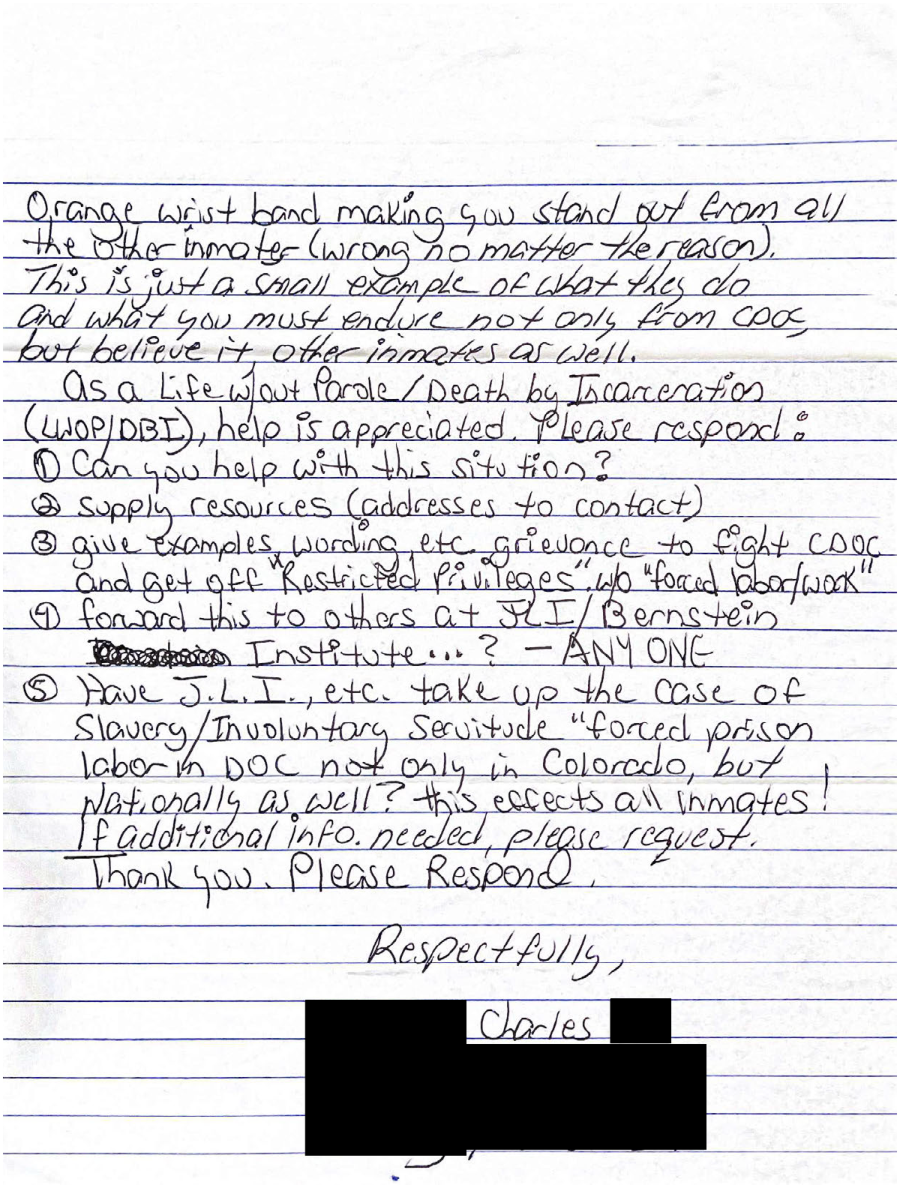 Orange wrist band making you stand out from all
the other inmates (wrong no matter the reason).
This is just a small example of what they do
and what you must endure not only from CDOC,
but believe it, other inmates as well.
As a Life w/out Parole/Death by Incarceration
(LWOP/DBI), help is appreciated. Please respond:
① Can you help with this sitution?
② supply resources (addresses to contact)
③ give examples, wording, etc. grievance to fight CDOC
and get off "Restricted Privileges" w/o "forced labor/work"
④ forward this to others at JLI/Bernstein
Institute...? – ANY ONE
⑤ Have J.L.I., etc. take up the case of
Slavery/Involuntary Servitude "forced prison
labor in DOC not only in Colorado, but
Nationally as well? this effects all inmates!
If additional info. needed, please request.
Thank you. Please Respond.
Respectfully,
Charles